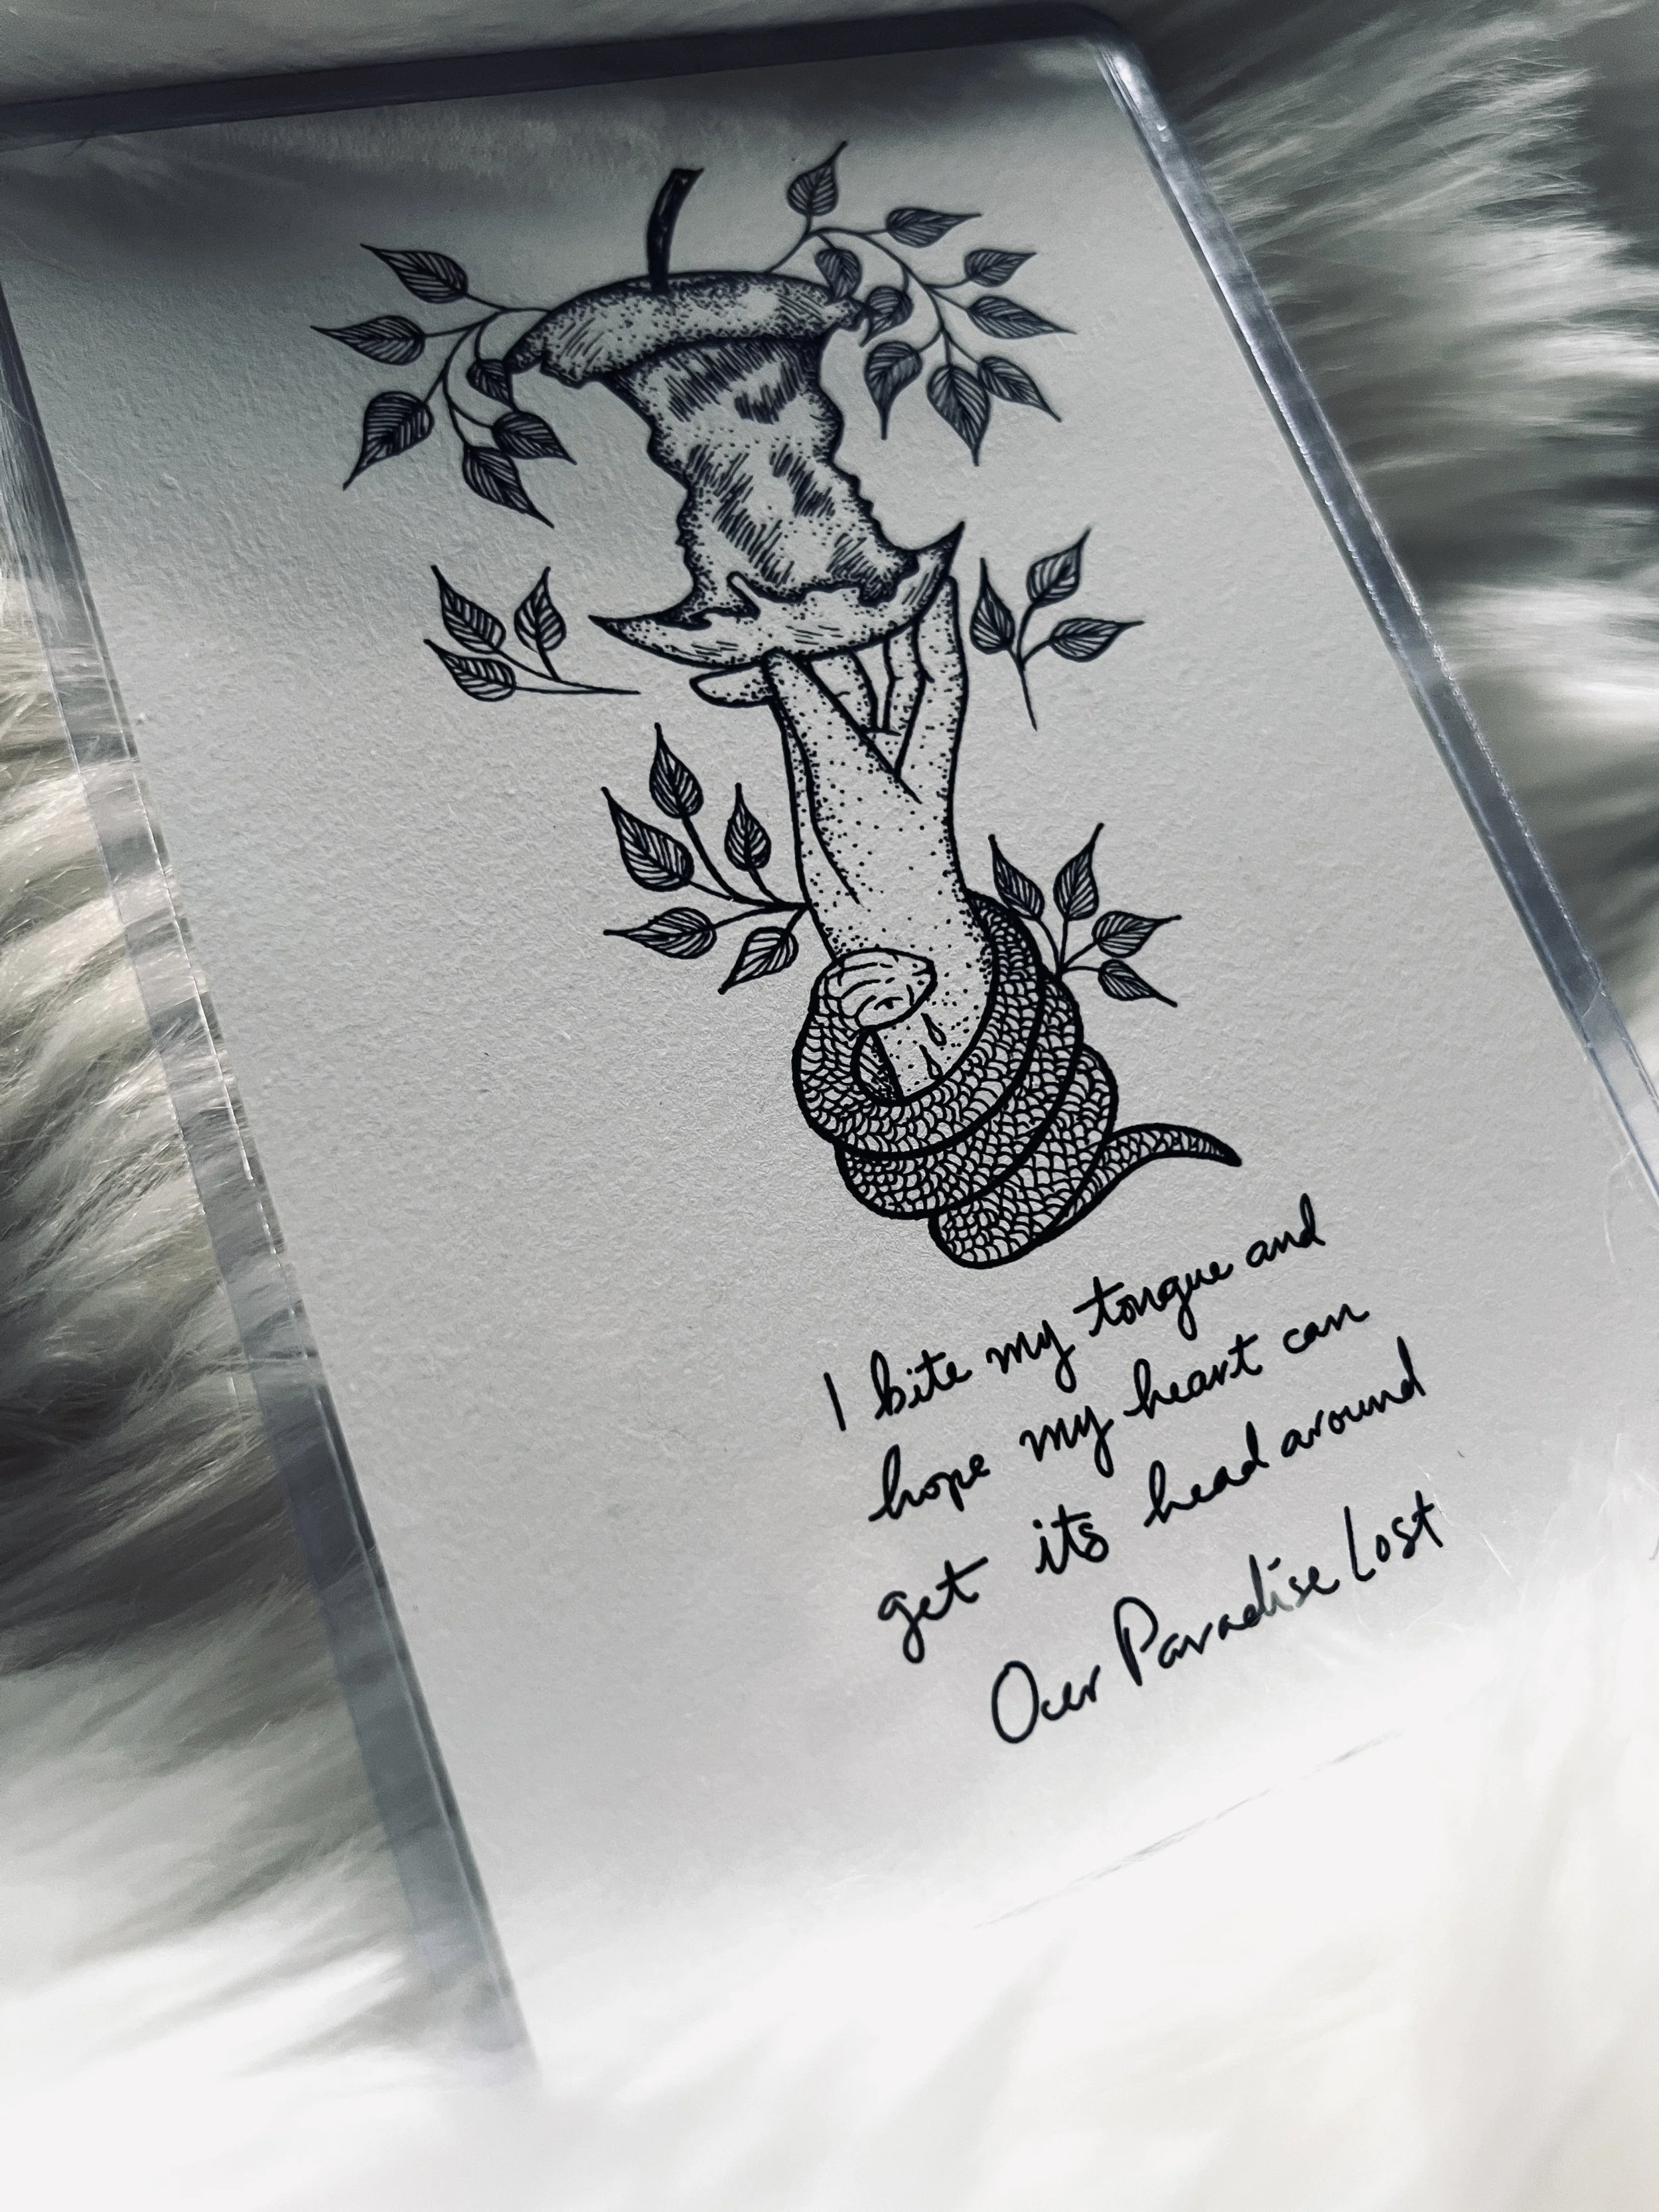 I bite my tongue and
hope my heart can
get its head around
Our Paradise Lost